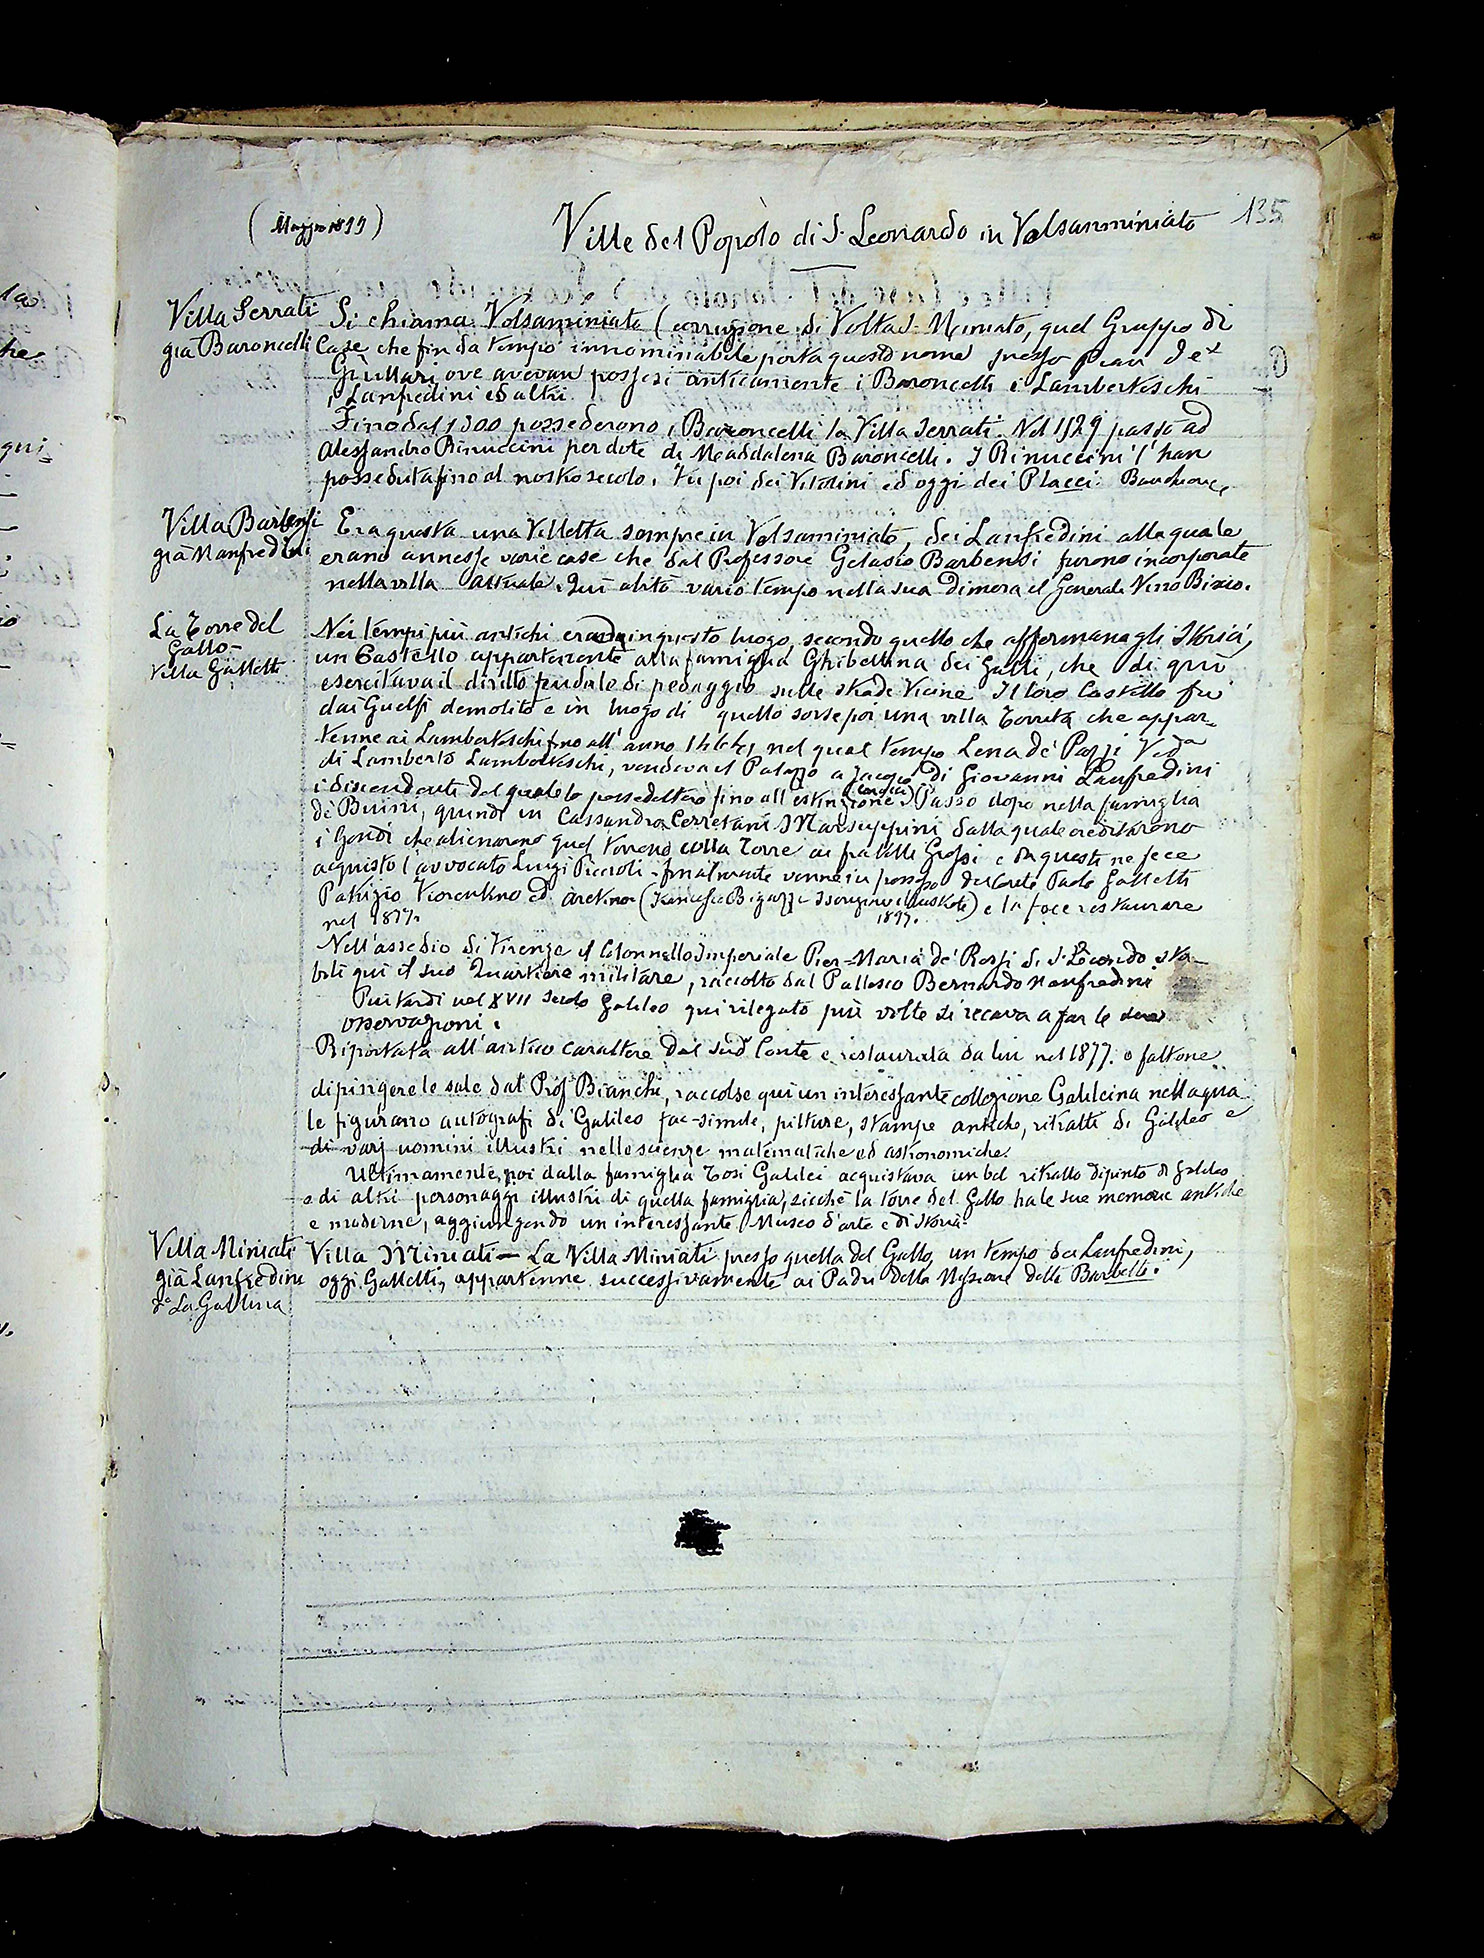 135
(Maggio 1899)
Ville del Popolo di S. Leonardo in Volsanminiato
Villa Serrati
già Baroncelli
Si chiama Volsaminiato (corruzione di Volta S. Miniato, quel Gruppo di
Case che fin da tempo innominabile porta questo nome presso Pian de'
Giullari ove avevan possessi anticamente i Baroncelli i Lamberteschi
i Lanfredini ed altri.
Fino dal 1300 possederono i Baroncelli la Villa Serrati. Nel 1529 passò ad
Alessandro Rinuccini per dote di Maddalena Baroncelli. I Rinuccini l'han
posseduta fino al nostro secolo. Fu poi dei Vitolini ed oggi dei Placci.
Villa Barbensi
già Manfredini
Era questa una Villetta sempre in Volsaminiato, dei Lanfredini alla quale
erano annesse varie case che dal Professore Gelasio Barbensi furono incorporate
nella villa attuale. Qui abitò vario tempo nella sua dimora il Generale Nino Bixio.
La Torre del
Gallo -
Villa Galletti
Nei tempi più antichi era in questo luogo, secondo quello che affermano gli Storici,
un Castello appartenente alla famiglia Ghibellina dei Galli, che di quì
esercitava il diritto feudale di pedaggio sulle strade vicine. Il loro Castello fu
dai Guelfi demolito e in luogo di quello sorse poi una villa Torrita che appar-
tenne ai Lamberteschi fino all'anno 1464, nel qual tempo Lena de' Pazzi Ved.a
di Lamberto Lamberteschi, vendeva il Palazzo a Jacopo di Giovanni Lanfredini
i discendenti del quale lo possedettero fino all'estinzione. Passò dopo nella famiglia
de' Buini, quindi in Cassandra Cerretani Marsuppini dalla quale ereditarono
i Gondi che alienarono quel terreno colla Torre ai fratelli Grossi e da questi ne fece
acquisto l'avvocato Luigi Piccioli - finalmente venne in possesso del Conte Paolo Galletti
Patrizio Fiorentino ed Aretino (Francesco Bigazzi Iscrizioni illustrate) e la fece restaurare
nel 1877.
Nell'assedio di Firenze il Colonnello Imperiale Pier-Maria de' Rossi di S. Secondo sta-
bilì qui il suo Quartiere militare, raccolto dal Pallesco Bernardo Manfredini
Più tardi nel XVII secolo Galileo qui rilegato più volte si recava a far le sue
osservazioni.
Riportata all'antico carattere dal sud.o Conte e restaurata da lui nel 1877. e fattone
dipingere le sale dal Prof. Bianchi, raccolse qui un interessante collezione Galileina nella qua-
le figurano autografi di Galileo fac-simile, pitture, stampe antiche, ritratti di Galileo e
di varj uomini illustri nelle scienze matematiche ed astronomiche.
Ultimamente poi dalla famiglia Tosi Galilei acquistava un bel ritratto dipinto di Galileo
e di altri personaggi illustri di quella famiglia, sicchè la torre del Gallo ha le sue memorie antiche
e moderne, aggiungendo un interessante Museo d'arte e di Storia.
Villa Miniati
già Lanfredini
d.a La Gallina
Villa Miniati - La Villa Miniati presso quella del Gallo, un tempo dei Lanfredini,
oggi Galletti, appartenne successivamente ai Padri della Missione detti Barbetti.